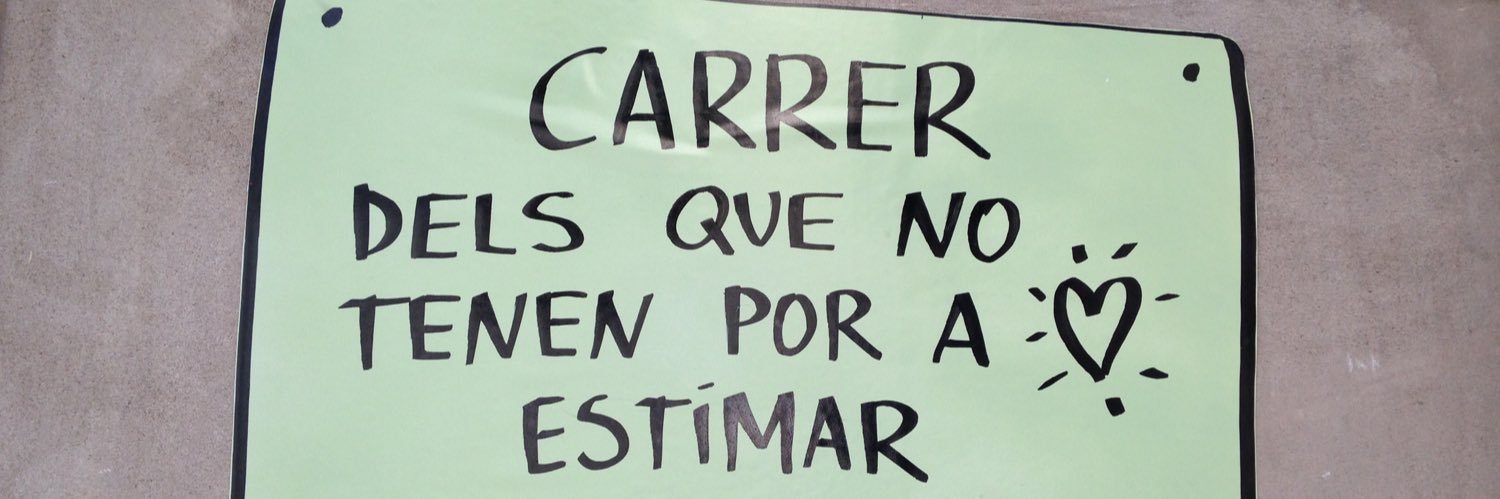 CARRER
DELS QUE NO
TENEN POR A
ESTIMAR